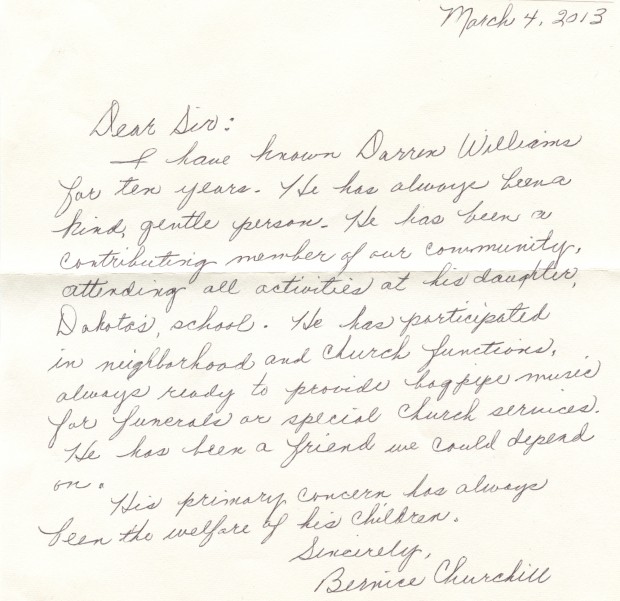 March 4, 2013
Dear Sir:
I have known Darren Williams
for ten years. He has always been a
kind, gentle person. He has been a
contributing member of our community,
attending all activities at his daughter,
Dakota's, school. He has participated
in neighborhood and church functions,
always ready to provide bagpipe music
for funerals or special church services.
He has been a friend we could depend
on.
His primary concern has always
been the welfare of his children.
Sincerely,
Bernice Churchill